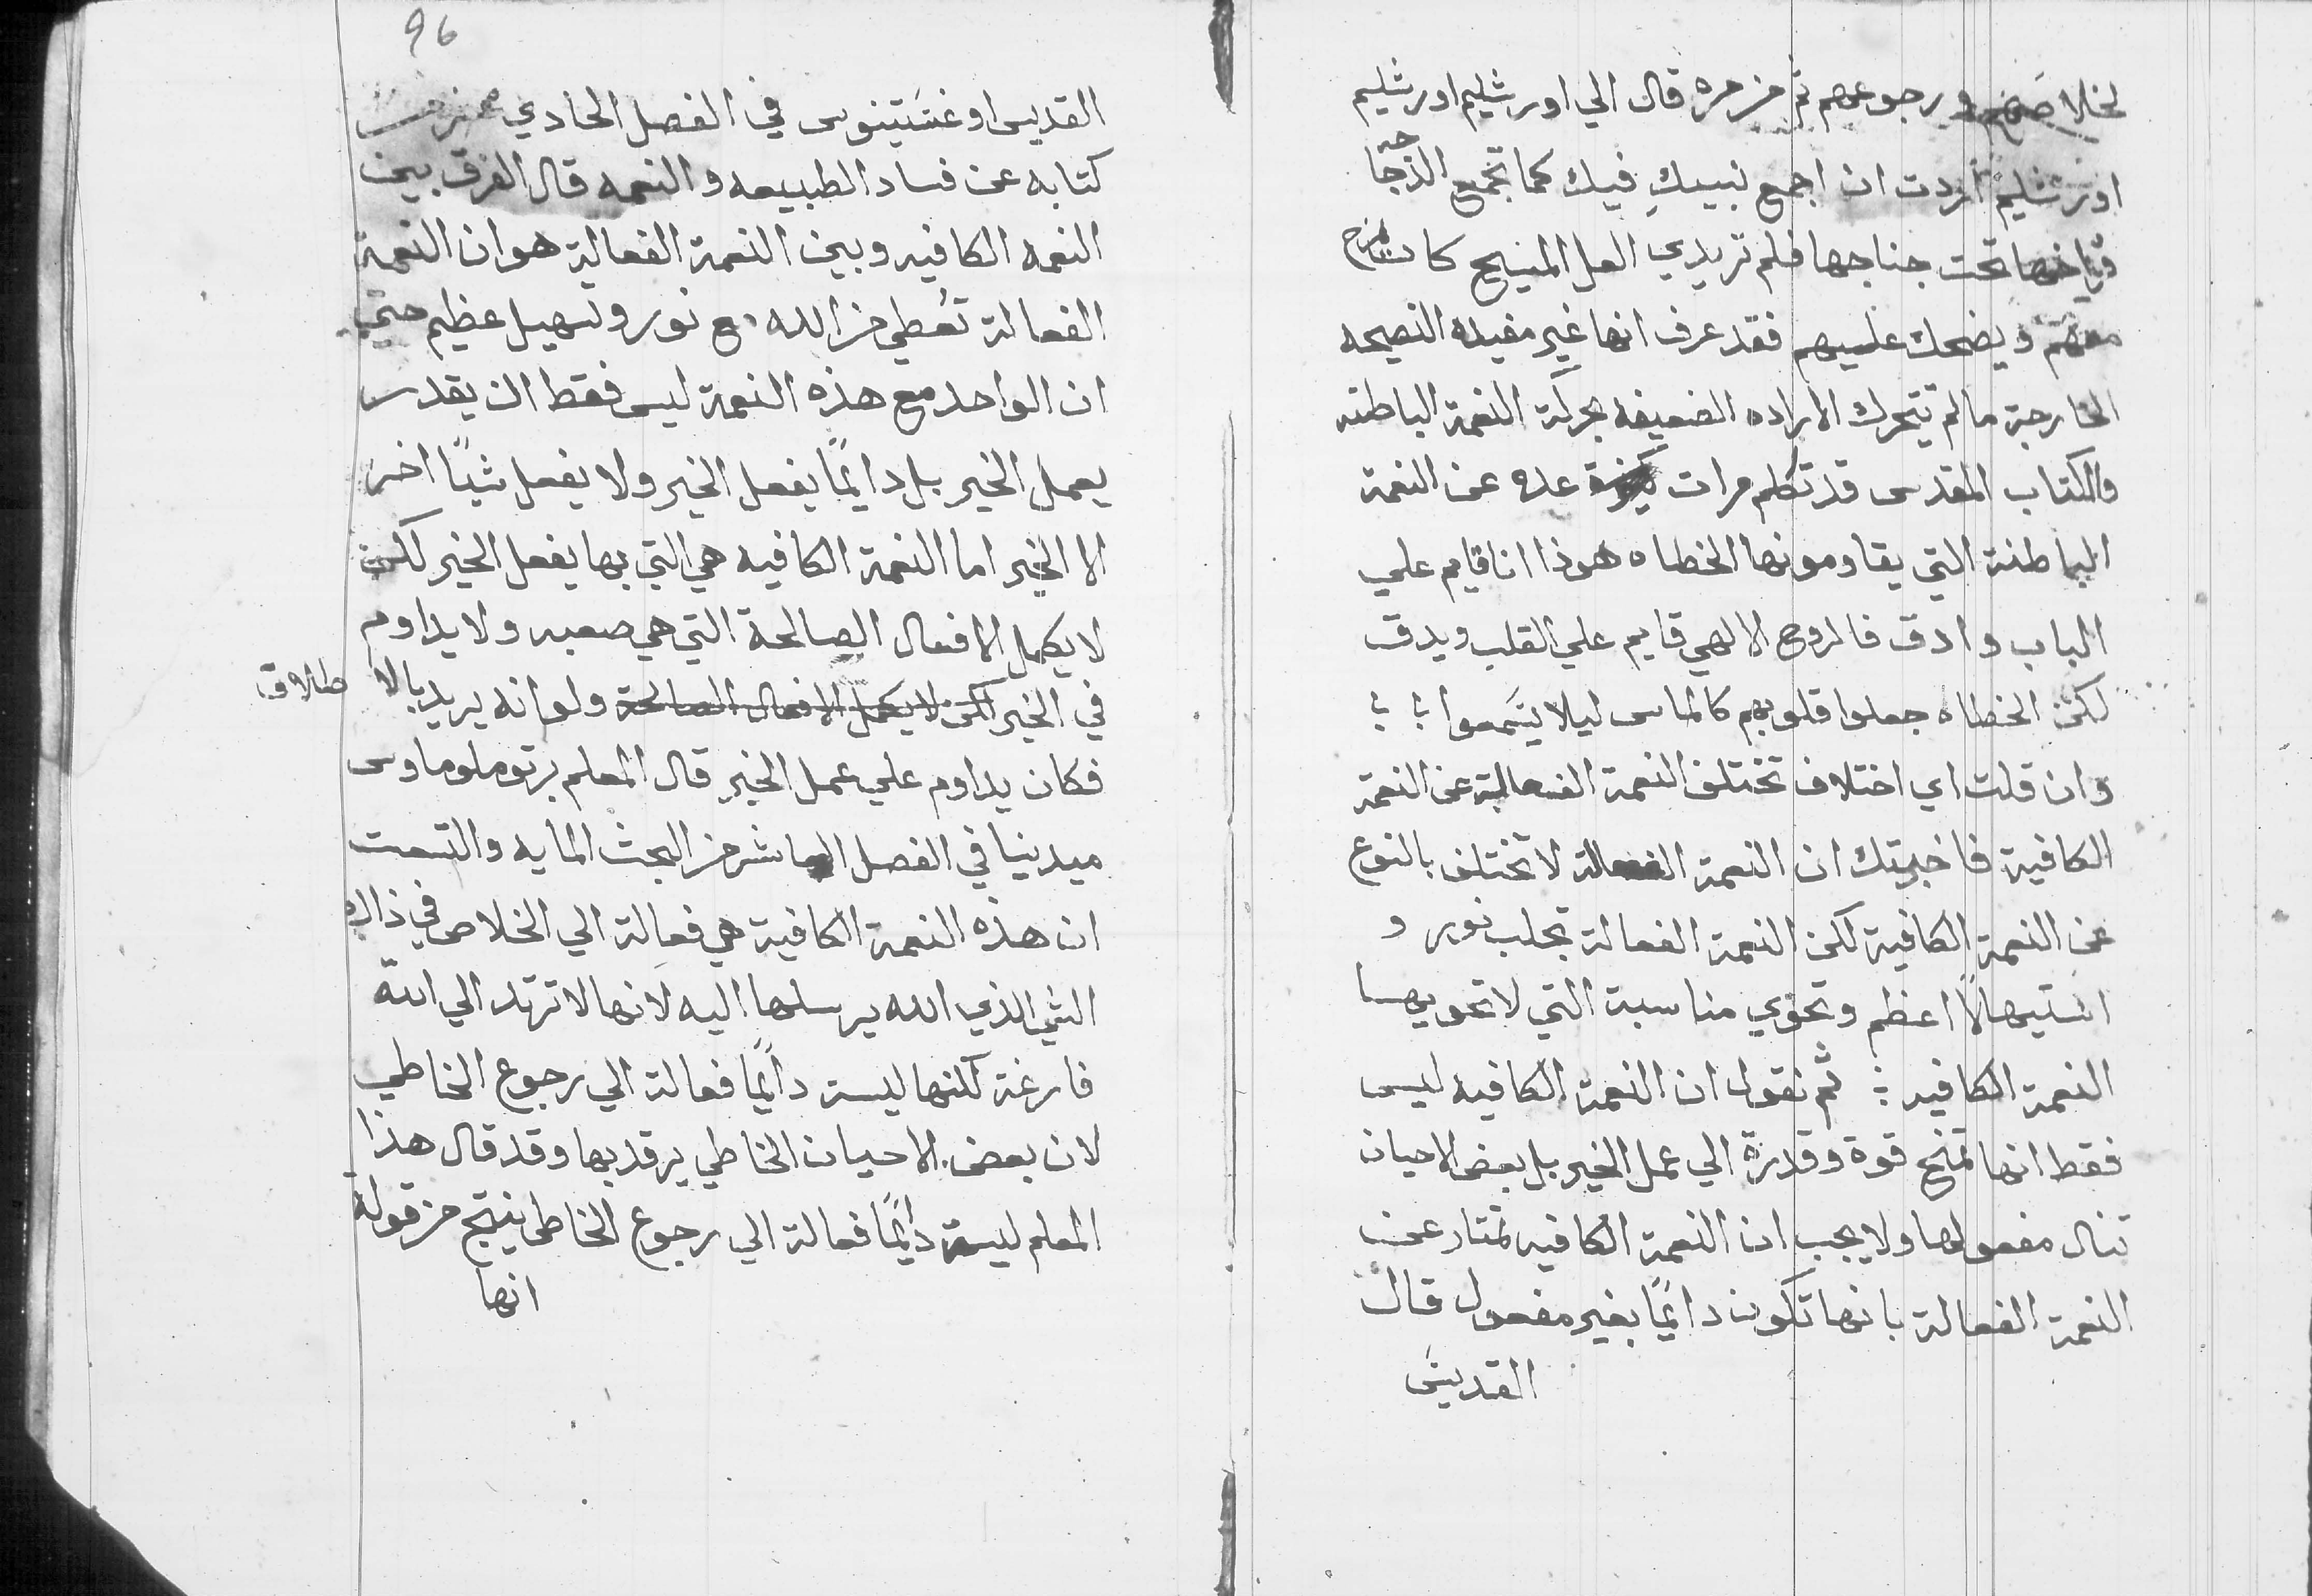 لخلاصهم ورجوعهم ثم من مره قال الي اورشليم اورشليم
اورشليم اردت ان اجمع بنييكِ فيك كما تجمع الدجاجه
فراخها تحت جناحها فلم تريدي العل المسيح كان يمزح
معهم ويضحك عليهم فقد عرف انها غير مفيده النصيحه
الخارجة ما لم تتحرك الاراده الضعيفه بحركة النعمة الباطنه
والكتاب المقدس قد تكلم مرات عده عن النعمة
الباطنة التي يقاومونها الخطاه هوذا انا قايم علي
الباب وادق فالروح الالهي قايم علي القلب ويدق
لكن الخطاه جعلوا قلوبهم كالماس ليلا يسمعوا
وان قلت اي اختلاف تختلف النعمة الفعالة عن النعمة
الكافية فاخبرتك ان النعمة الفعالة لا تختلف بالنوع
عن النعمة الكافية لكن النعمة الفعالة تجلب نور و
استيهالًا اعظم وتحوي مناسبة التي لا تحويها
النعمة الكافيه : ثم نقول ان النعمة الكافيه ليس
فقط انها تمنح قوة وقدرة الي عمل الخير بل بعض الاحيان
تنال مفعولها ولا يجب ان النعمة الكافيه تمتاز عن
النعمة الفعالة بانها تكون دايمًا بغير مفعول قال
القديس
96
القديس اوغستينوس في الفصل الحادي عشر من
كتابه عن فساد الطبيعه والنعمه قال الفرق بين
النعمه الكافيه وبين النعمة الفعالة هو ان النعمة
الفعالة تُعطي من الله مع نور وتسهيل عظيم حتي
ان الواحد مع هذه النعمة ليس فقط ان يقدر
يعمل الخير بل دايمًا يفعل الخير ولا يفعل شيًا اخر
الا الخير اما النعمة الكافيه هي التي بها يفعل الخير لكن
لا يكمل الافعال الصالحة التي هي صعبه ولا يداوم
في الخير لكن لا يكمل الافعال الصالحة ولو انه يريد بالاطلاق
فكان يداوم علي عمل الخير قال المعلم برتولوماوس
ميدينا في الفصل العاشر من البحث المايه والتسعت
ان هذه النعمة الكافية هي فعالة الي الخلاص في ذلك
الشي الذي الله يرسلها اليه لانها لا ترتد الي الله
فارغة لكنها ليست دايمًا فعالة الي رجوع الخاطي
لان بعض الاحيان الخاطي يرقد بها وقد قال هذا
المعلم ليست دايمًا فعالة الي رجوع الخاطي ينتج من قوله
انها